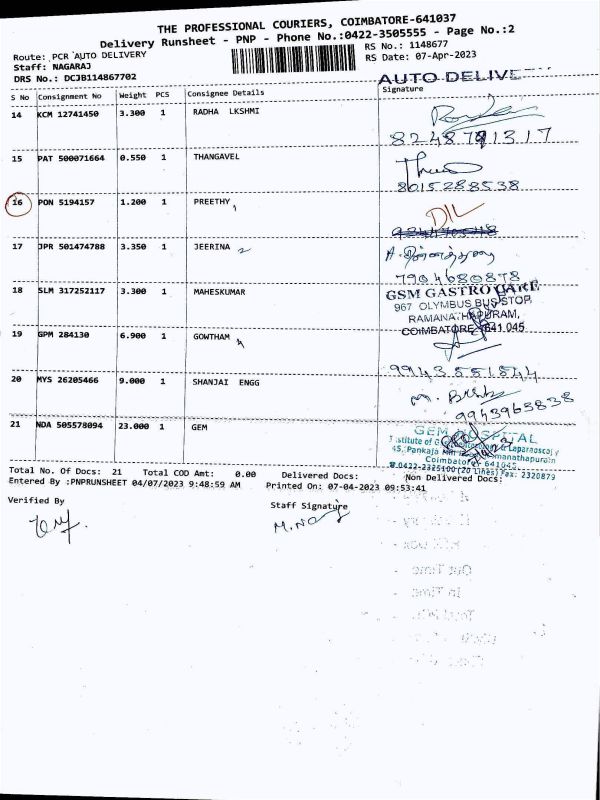 THE PROFESSIONAL COURIERS, COIMBATORE-641037
Delivery Runsheet - PNP - Phone No.:0422-3505555 - Page No.:2
Route: PCR AUTO DELIVERY RS No.: 1148677
Staff: NAGARAJ RS Date: 07-Apr-2023
DRS No.: DCJB114867702 AUTO DELIVE
S No Consignment No Weight PCS Consignee Details Signature
14 KCM 12741450 3.300 1 RADHA LKSHMI
15 PAT 500071664 0.550 1 THANGAVEL
8015288538
16 PON 5194157 1.200 1 PREETHY
17 JPR 501474788 3.350 1 JEERINA 2
7904680878
18 SLM 317252117 3.300 1 MAHESKUMAR GSM GASTRO CARE
967 OLYMBUS BUS STOP,
RAMANATHAPURAM,
COIMBATORE 641 045
19 GPM 284130 6.900 1 GOWTHAM
20 MYS 26205466 9.000 1 SHANJAI ENGG
9943965838
21 NDA 505578094 23.000 1 GEM GEM HOSPITAL
45, Pankaja Mill Ramanathapuram
Coimbatore 641045
0422-2325100 (20 Lines) Fax: 2320879
Total No. Of Docs: 21 Total COD Amt: 0.00 Delivered Docs: Non Delivered Docs:
Entered By :PNPRUNSHEET 04/07/2023 9:48:59 AM Printed On: 07-04-2023 09:53:41
Verified By Staff Signature